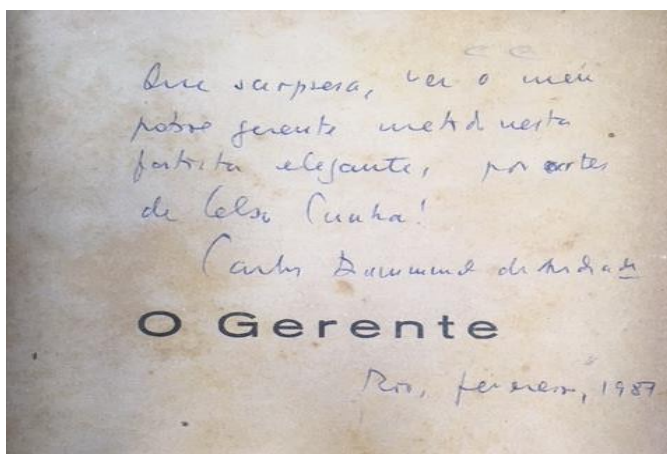 Que surpresa, ver o meu
pobre gerente metido nesta
fatiota elegante, por artes
de Celso Cunha!
Carlos Drummond de Andrade
O Gerente
Rio, fevereiro, 1987